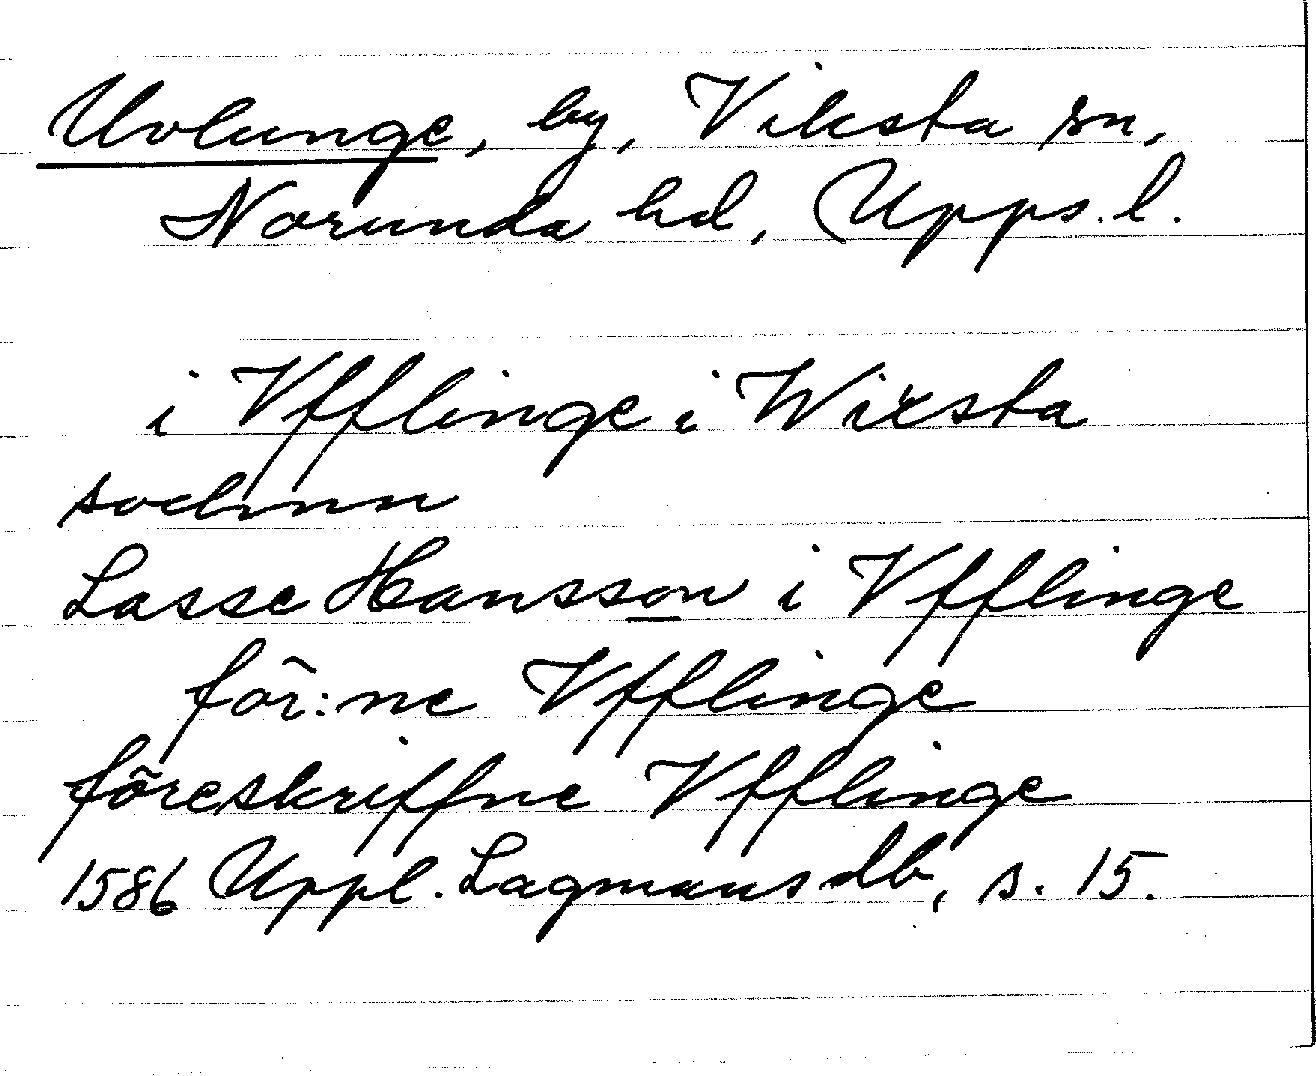 Uvlunge, by, Viksta sn,
Norunda hd, Upps. l.
i Vfflinge i Wixsta
sochnn
Lasse Hansson i Vfflinge
för:ne Vfflinge
föreskriffne Vfflinge
1586 Uppl. Lagmansdb, s. 15.